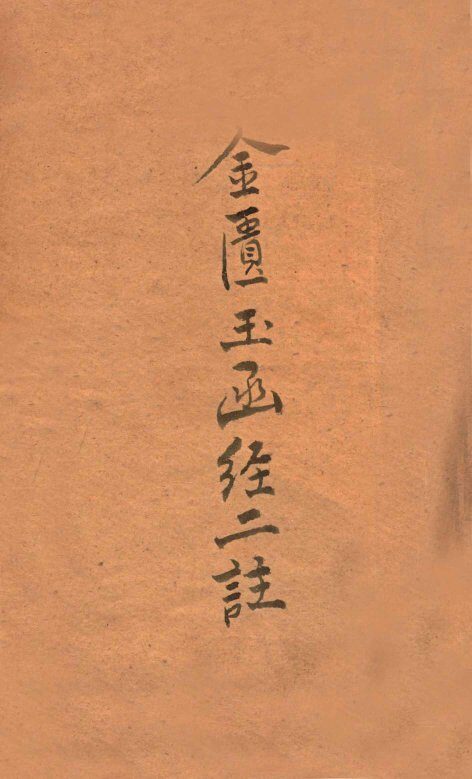 金匱玉函经二註